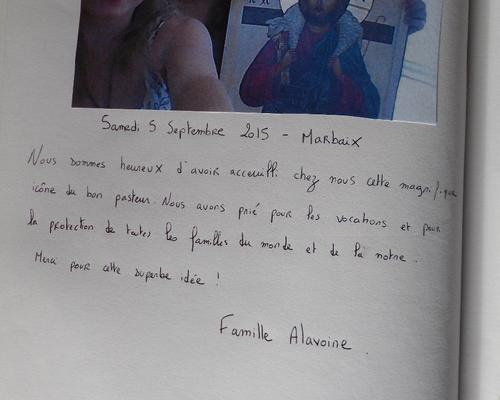 Samedi 5 Septembre 2015 - Marbaix
Nous sommes heureux d'avoir accueilli chez nous cette magnifique
icône du bon pasteur. Nous avons prié pour les vocations et pour
la protection de toutes les familles du monde et de la notre.
Merci pour cette superbe idée !
Famille Alavoine.